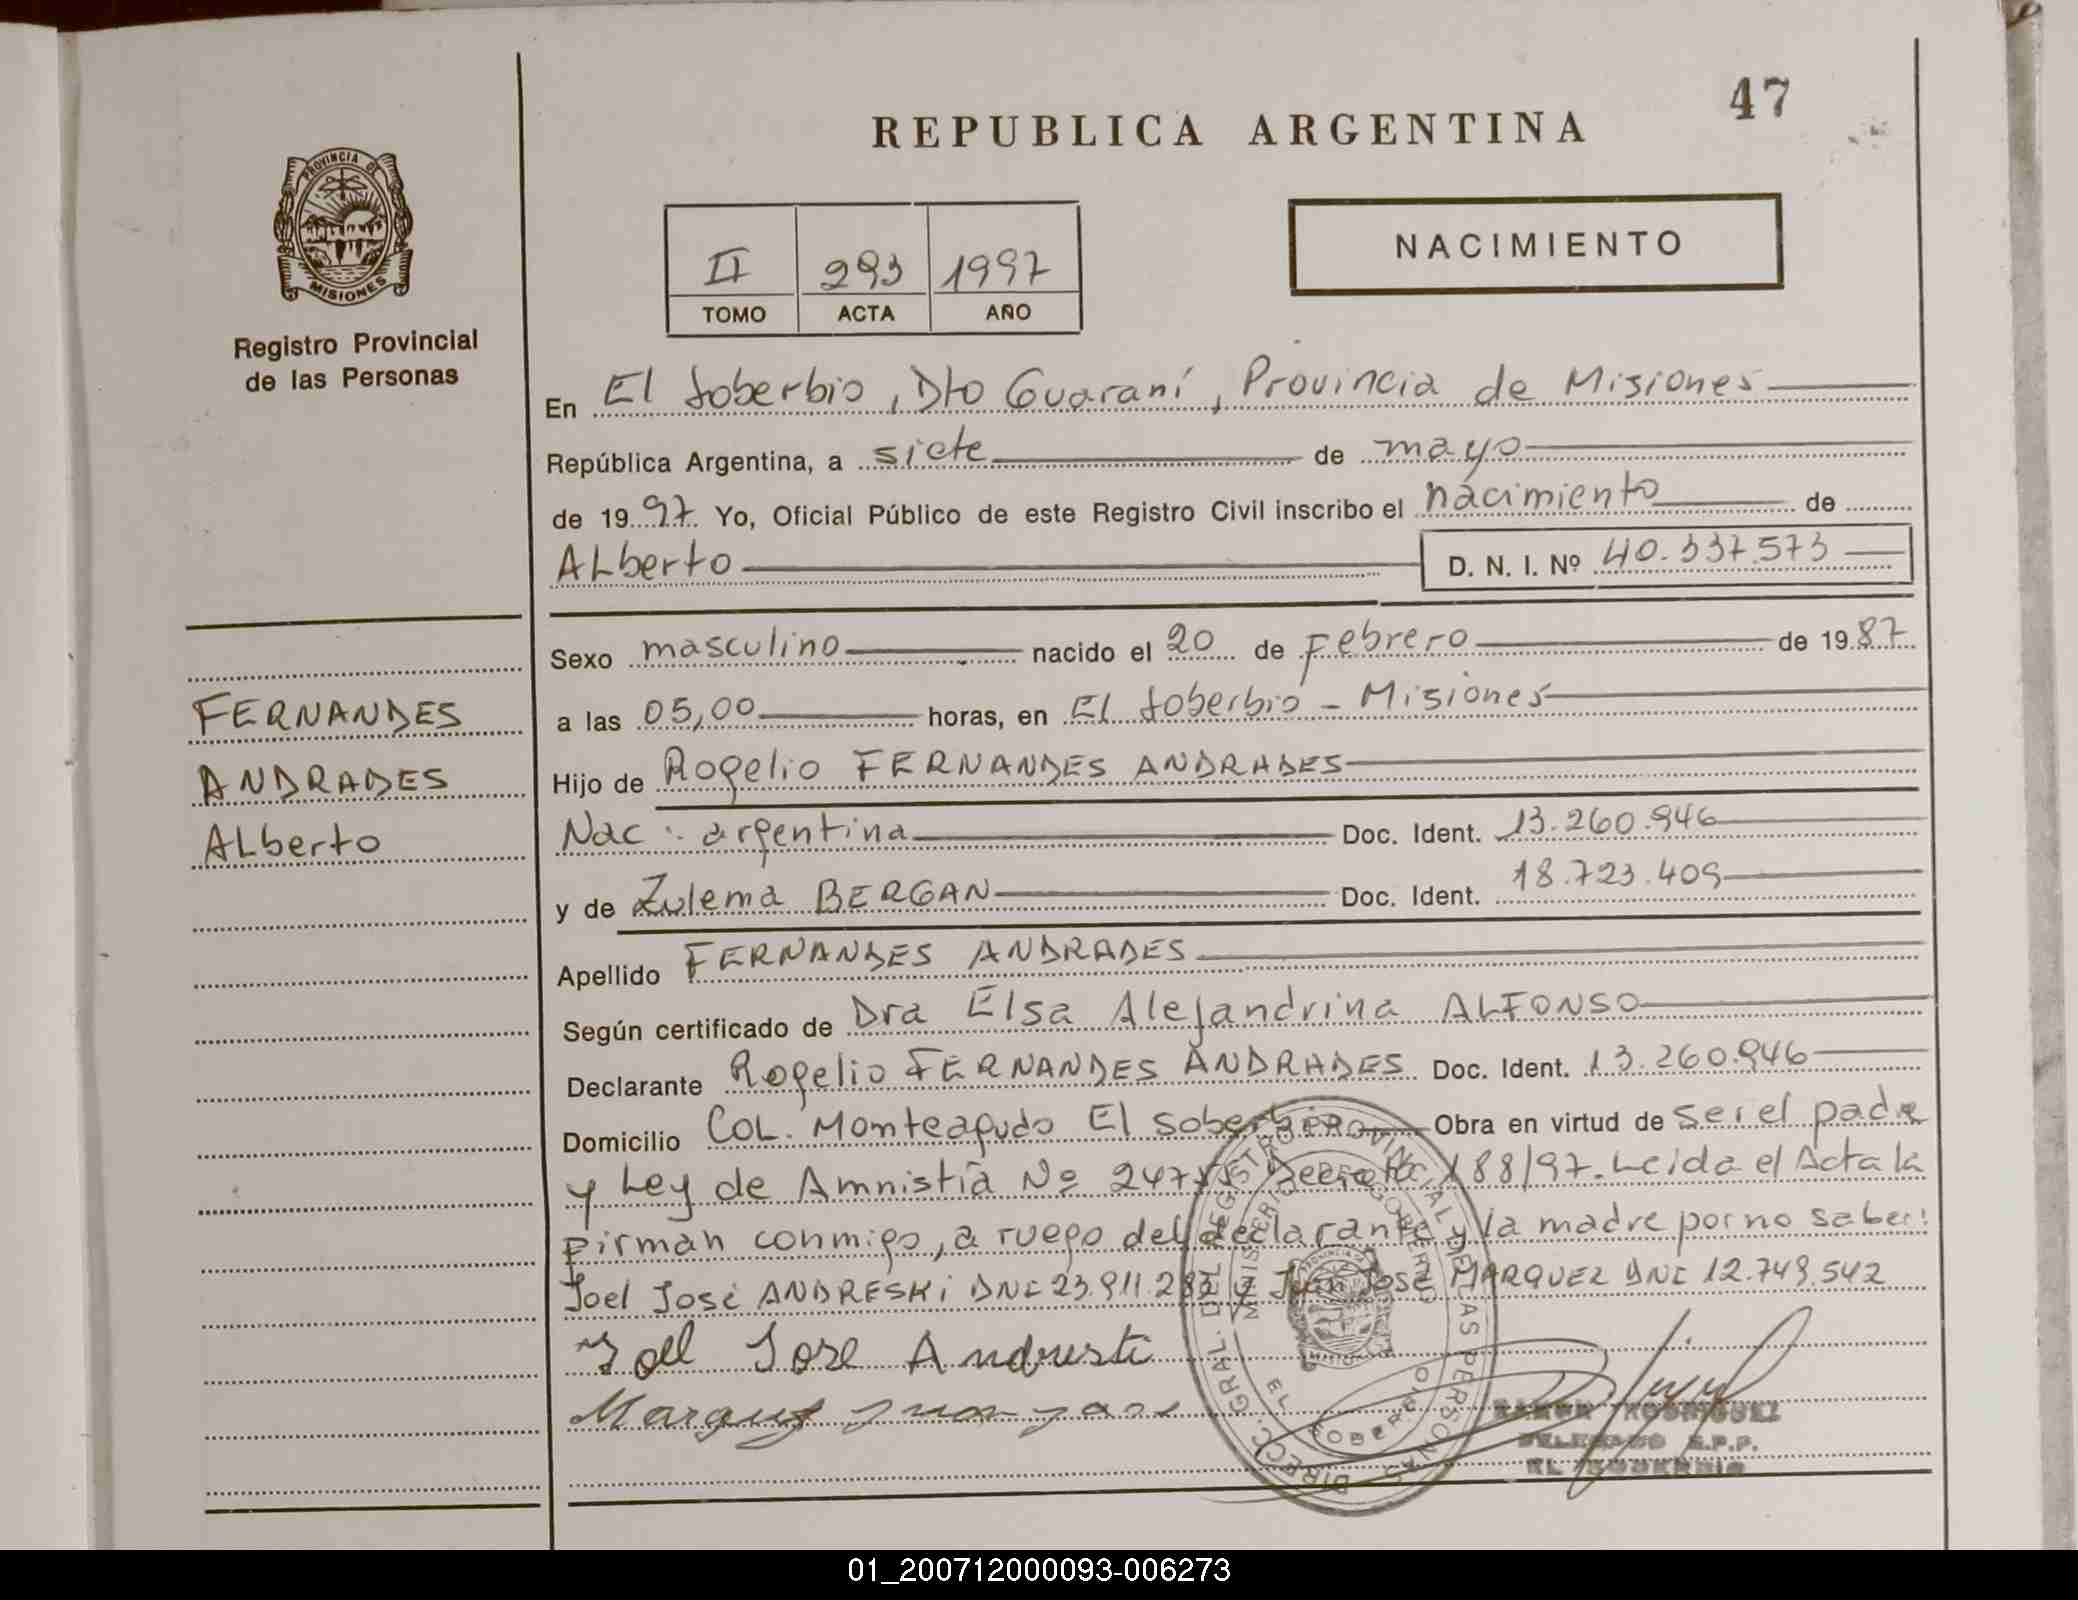 47
REPUBLICA ARGENTINA
PROVINCIA DE
MISIONES
Registro Provincial
de las Personas
II 293 1997
TOMO ACTA AÑO
NACIMIENTO
En El Soberbio, Dto Guaraní, Provincia de Misiones
República Argentina, a siete de mayo
de 1997 Yo, Oficial Público de este Registro Civil inscribo el nacimiento de
ALberto D. N. I. Nº 40.337.573
Sexo masculino nacido el 20 de Febrero de 1987
a las 05,00 horas, en El Soberbio - Misiones
Hijo de Rogelio FERNANDES ANDRADES
Nac: argentina Doc. Ident. 13.260.946
y de Zulema BERGAN Doc. Ident. 18.723.409
Apellido FERNANDES ANDRADES
Según certificado de Dra Elsa Alejandrina ALFONSO
Declarante Rogelio FERNANDES ANDRADES Doc. Ident. 13.260.946
Domicilio COL. Monteagudo El Soberbio Obra en virtud de ser el padre
y Ley de Amnistía Nº 2475 Decreto 188/97. Leida el Acta la
Firman conmigo, a ruego del declarante y la madre por no saber:
Joel José ANDRESKi DNI 23.911.282 y Juan José MARQUEZ DNI 12.749.542
Joel Jose Andreski
Marquez Juan Jose
FERNANDES
ANDRADES
ALberto
DIRECC. GRAL. DEL REGISTRO PROVINCIAL DE LAS PERSONAS
MINISTERIO DE GOBIERNO
EL SOBERBIO
RAMON RODRIGUEZ
DELEGADO R.P.P.
EL SOBERBIO
01_200712000093-006273